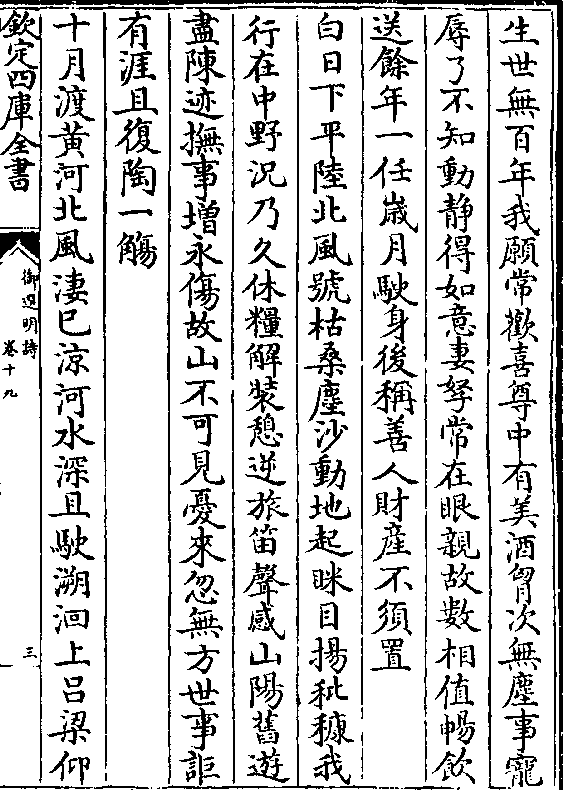 生世無百年我願常歡喜尊中有美酒胷次無塵事寵
辱了不知動靜得如意妻孥常在眼親故數相值暢飲
送餘年一任嵗月駛身後稱善人財産不須置
白日下平陸北風號枯桑塵沙動地起眯目揚秕穅我
行在中野況乃久休糧解装憩逆旅笛聲感山陽舊遊
盡陳迹撫事増永傷故山不可見憂來忽無方世事詎
有涯且復陶一觴
十月渡黄河北風淒已涼河水深且駛溯洄上吕梁仰
欽定四庫全書
御選明詩
卷十九
三